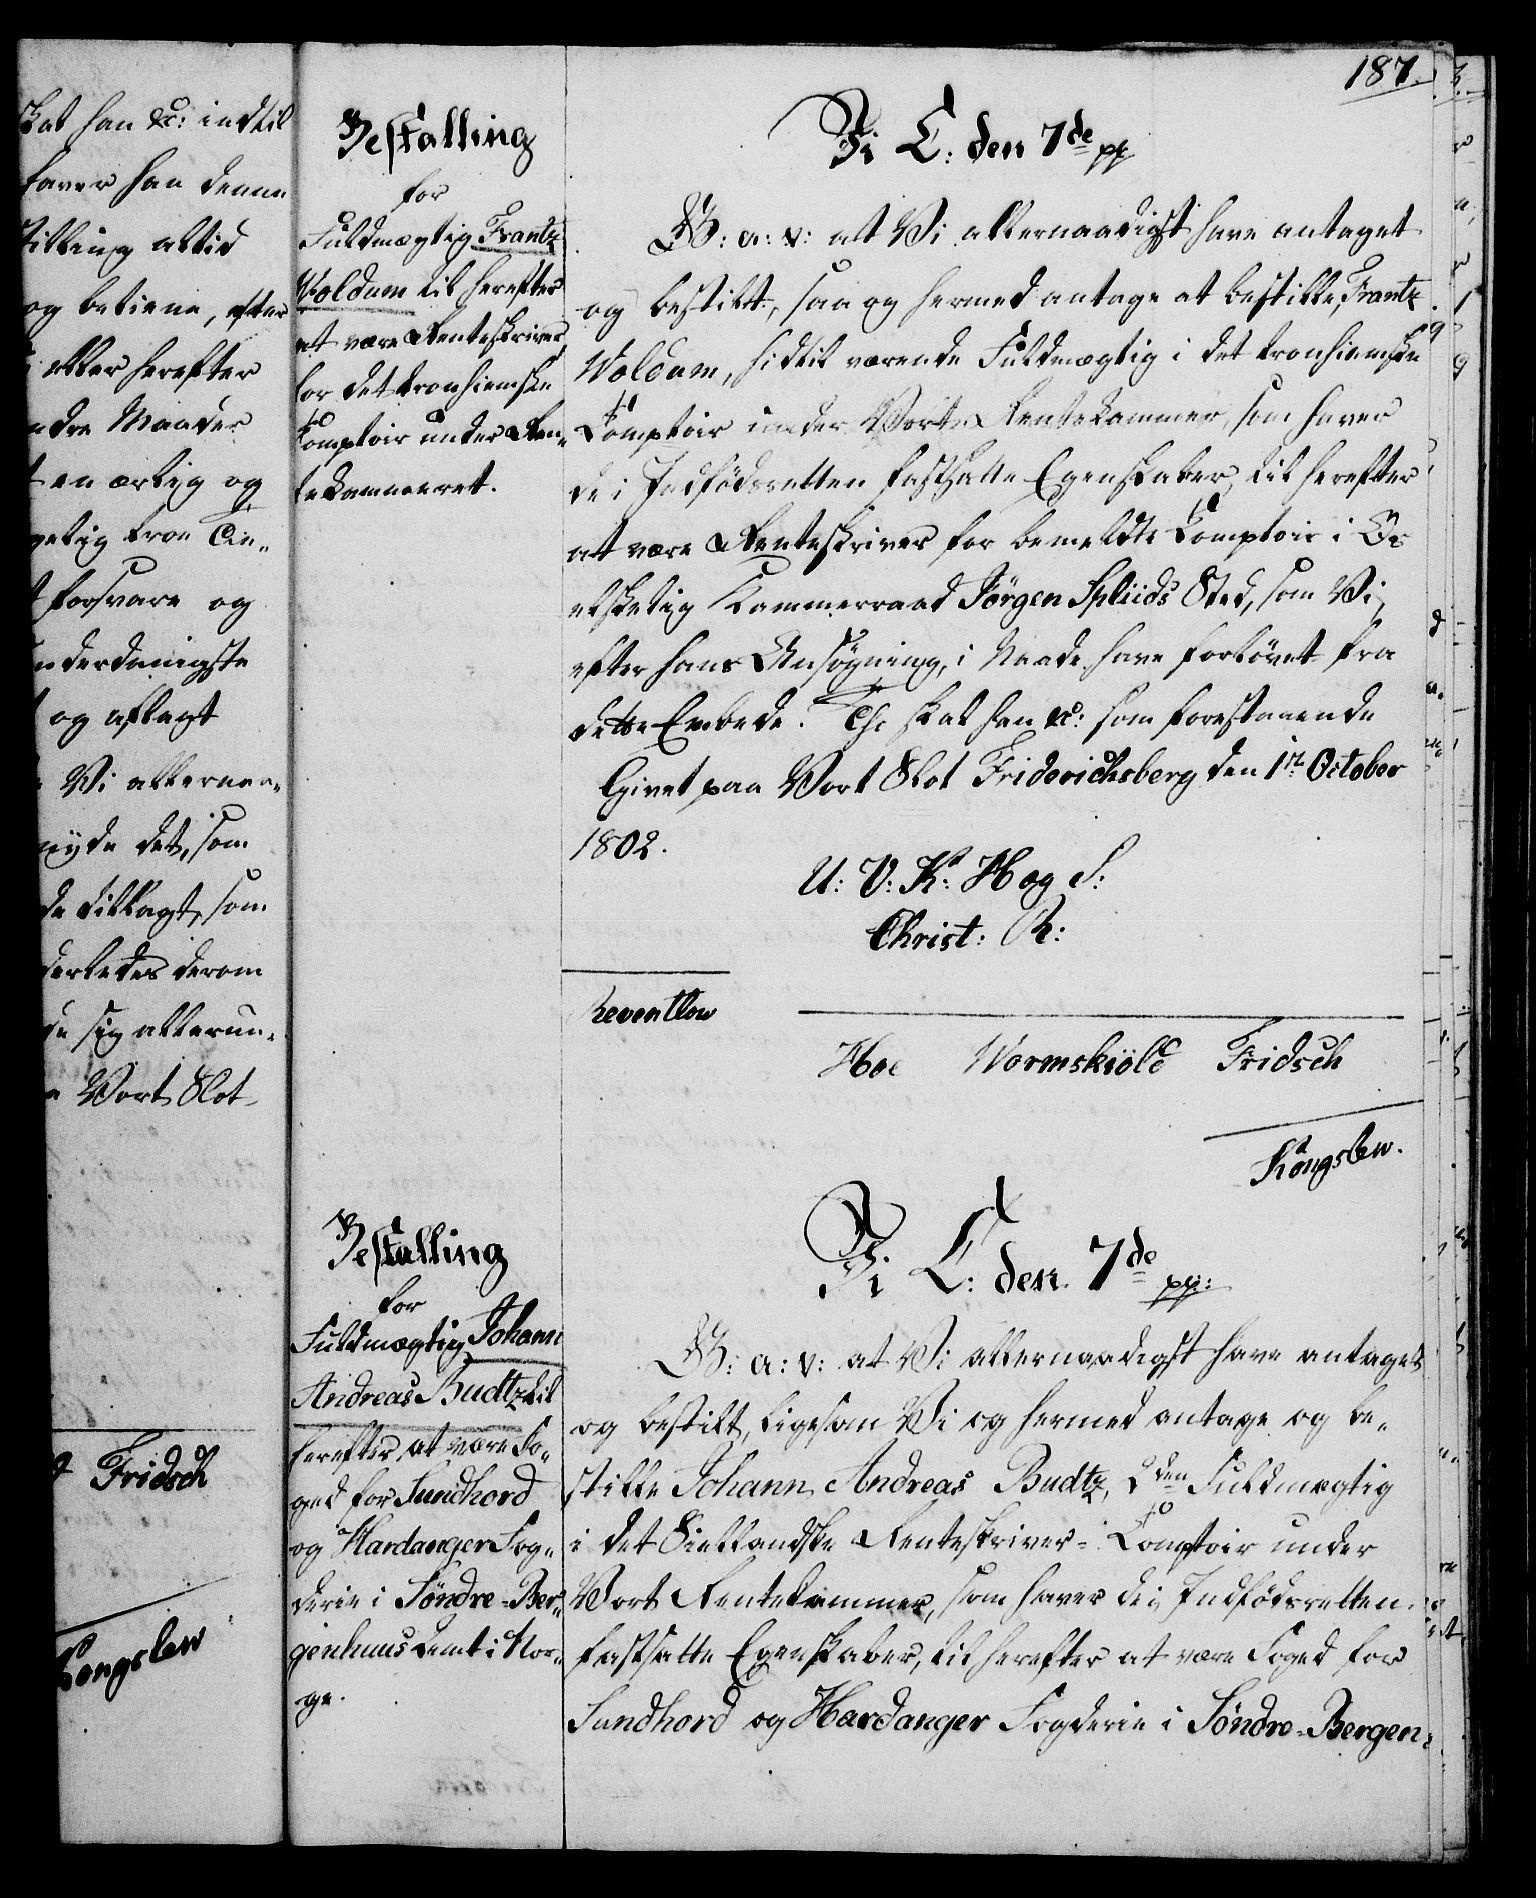 187.
skal han &c: indtil
haver han denne
stilling altid
og betiene, efter
eller herefter
andre Maader
en ærlig og
troe Tie-
forsvare og
underdanigste
og aflagt
Vi allernaa-
nyde det, som
tillagt, som
derledes derom
sig allerun-
Vort Slot
Fridsch
Kongslew
Bestalling
for
Fuldmægtig Frantz
Woldum til herefter
at være Renteskriver
for det tronhiemske
Comptoir under Ren-
tekammeret.
Vi C: den 7de pp
G: a: v: at Vi allernaadigst have antaget
og bestilt, saa og hermed antage at bestille, Frantz
Woldum, hidtil værende Fuldmægtig i det tronhiemske
Comptoir under Vort Rentekammer, som haver
de i Indfødsretten fastsatte Egenskaber, til herefter
at være Renteskriver for bemeldte Comptoir i Os
elskelig Kammerraad Jørgen Spliids Sted, som Vi,
efter hans Ansøgning, i Naade have forlövet fra
dette Embede. Thi skal han &c: som forestaaende
Givet paa Vort Slot Friderichsberg den 1te October
1802.
U: V: K: H og S:
Christ: R:
Reventlow
Hoe Wormskiöld Fridsch
Kongslew.
Bestalling
for
Fuldmægtig Johann
Andreas Budtz til
herefter at være Fo-
ged for Sundhord
og Hardanger Fog-
derie i Söndre-Ber-
genhuus Amt i Nor-
ge.
Vi C: den 7de pp:
G: a: v: at Vi allernaadigst have antaget
og bestilt, ligesom Vi og hermed antage og be-
stille Johann Andreas Budtz, 2den Fuldmægtig
i det Siellandske Renteskriver-Comptoir under
Vort Rentekammer, som haver de i Indfødsretten
fastsatte Egenskaber, til herefter at være Foged for
Sundhord og Hardanger Fogderie i Söndre-Bergen-